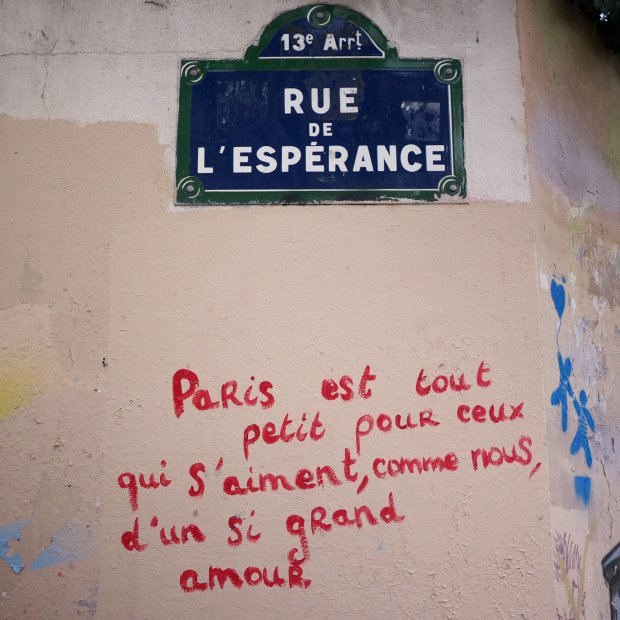 13e Arrt
RUE
DE
L'ESPÉRANCE
Paris est tout
petit pour ceux
qui s'aiment, comme nous,
d'un si grand
amour